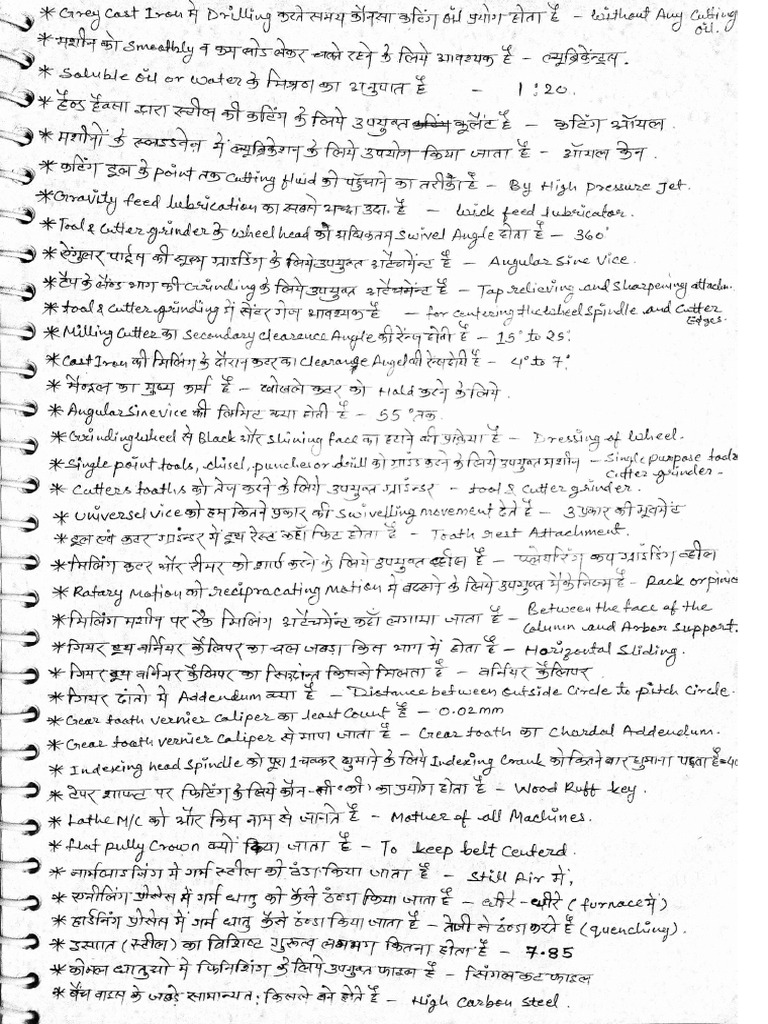 * Grey Cast Iron में Drilling करते समय कौनसा कटिंग oil प्रयोग होता है - without Any Cutting oil.
* मशीन को Smoothly व कम लोड लेकर चलते रहने के लिये आवश्यक है - ल्यूब्रिकेन्ट्स.
* Soluble oil or water के मिश्रण का अनुपात है - 1:20.
* हैण्ड हैक्सा द्वारा स्टील की कटिंग के लिये उपयुक्त कूलेंट है - कटिंग ऑयल.
* मशीनों के स्लाइडवेज़ में ल्यूब्रिकेशन के लिये उपयोग किया जाता है - ऑयल केन.
* कटिंग टूल के point तक Cutting fluid को पहुँचाने का तरीका है - By High Pressure Jet.
* Gravity feed lubrication का सबसे अच्छा उदा. है - wick feed lubricator.
* Tool & Cutter grinder के wheel head को अधिकतम Swivel Angle होता है - 360°
* ऐंगुलर पाईप की सूक्ष्म ग्राइडिंग के लिये उपयुक्त अटैचमेन्ट है - Angular Sine Vice.
* टैप के लैण्ड भाग की Grinding के लिये उपयुक्त अटैचमेन्ट है - Tap relieving and Sharpening attachm.
* tool & Cutter grinding में सेंटर गेज आवश्यक है - for centering the wheel Spindle and Cutter Edges.
* Milling Cutter का Secondary Clearence Angle की रेन्ज होती है - 15° to 25°
* Cast Iron की मिलिंग के दौरान कटर का Clearange Angel की रेन्ज होती है - 4° to 7°
* मैन्ड्रल का मुख्य कार्य है - खोखले कटर को Hold करने के लिये.
* Angular Sine vice की लिमिट क्या होती है - 55° तक.
* Grinding wheel से Black और Shining face का हटाने की प्रक्रिया है - Dressing of wheel.
* Single point tools, chisel, punches or drill को ग्राइंड करने के लिये उपयुक्त मशीन - Single purpose tools Cutter grinder -
* Cutters tooths को तेज करने के लिये उपयुक्त ग्राइन्डर - tool & Cutter grinder.
* universel vice को हम कितने प्रकार की Swivelling movement देते है - 3 प्रकार की मूवमेंट
* टूल एवं कटर ग्राइन्डर में टूथ रेस्ट कहाँ फिट होता है - Tooth rest Attachment.
* मिलिंग कटर और रीमर को शार्प करने के लिये उपयुक्त व्हील है - फ्लेयरिंग कप ग्राइडिंग व्हील
* Rotary Motion को reciprocating Motion में बदलने के लिये उपयुक्त मैकेनिज्म है - Rack or pinio
* मिलिंग मशीन पर रैक मिलिंग अटैचमेन्ट कहाँ लगाया जाता है - Between the face of the Column and Arbor Support.
* गियर टूथ वर्नियर कैलिपर का चल जबड़ा किस भाग में होता है - Horizontal Sliding.
* गियर टूथ वर्नियर कैलिपर का सिद्धान्त किससे मिलता है - वर्नियर कैलिपर.
* गियर दांतो में Addendum क्या है - Distance between outside Circle to pitch Circle.
* Gear tooth vernier Caliper का least Count है - 0.02mm
* Gear tooth vernier Caliper से मापा जाता है - Gear tooth का Chordal Addendum.
* Indexing head Spindle को पूरा 1 चक्कर घुमाने के लिये Indexing Crank को कितने बार घुमाना पड़ता है = 40
* टेपर शाफ्ट पर फिटिंग के लिये कौन-सी 'की' का प्रयोग होता है - Wood Ruff key.
* Lathe M/C को और किस नाम से जानते है - Mother of all Machines.
* flat pully Crown क्यों किया जाता है - To keep belt Centerd.
* नार्मलाइजिंग में गर्म स्टील को ठंडा किया जाता है - Still Air में,
* एनीलिंग प्रोसेस में गर्म धातु को कैसे ठंण्डा किया जाता है - धीरे-धीरे (furnace में)
* हार्डनिंग प्रोसेस में गर्म धातु कैसे ठंण्डा किया जाता है - तेजी से ठंण्डा करते है (quenching).
* इस्पात (स्टील) का विशिष्ट गुरूत्व लगभग कितना होता है - 7.85
* कोमल धातुयो में फिनिशिंग के लिये उपयुक्त फाइल है - सिंगल कट फाइल
* बैंच वाइस के जबड़े सामान्यत: किसके बने होते है - High Carbon Steel.